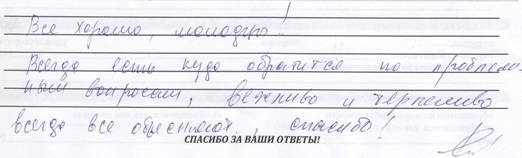 Все хорошо, молодцы!
Всегда есть куда обратится по проблем-
ным вопросам, вежливо и терпеливо
всегда все объясняют, спасибо!
СПАСИБО ЗА ВАШИ ОТВЕТЫ!